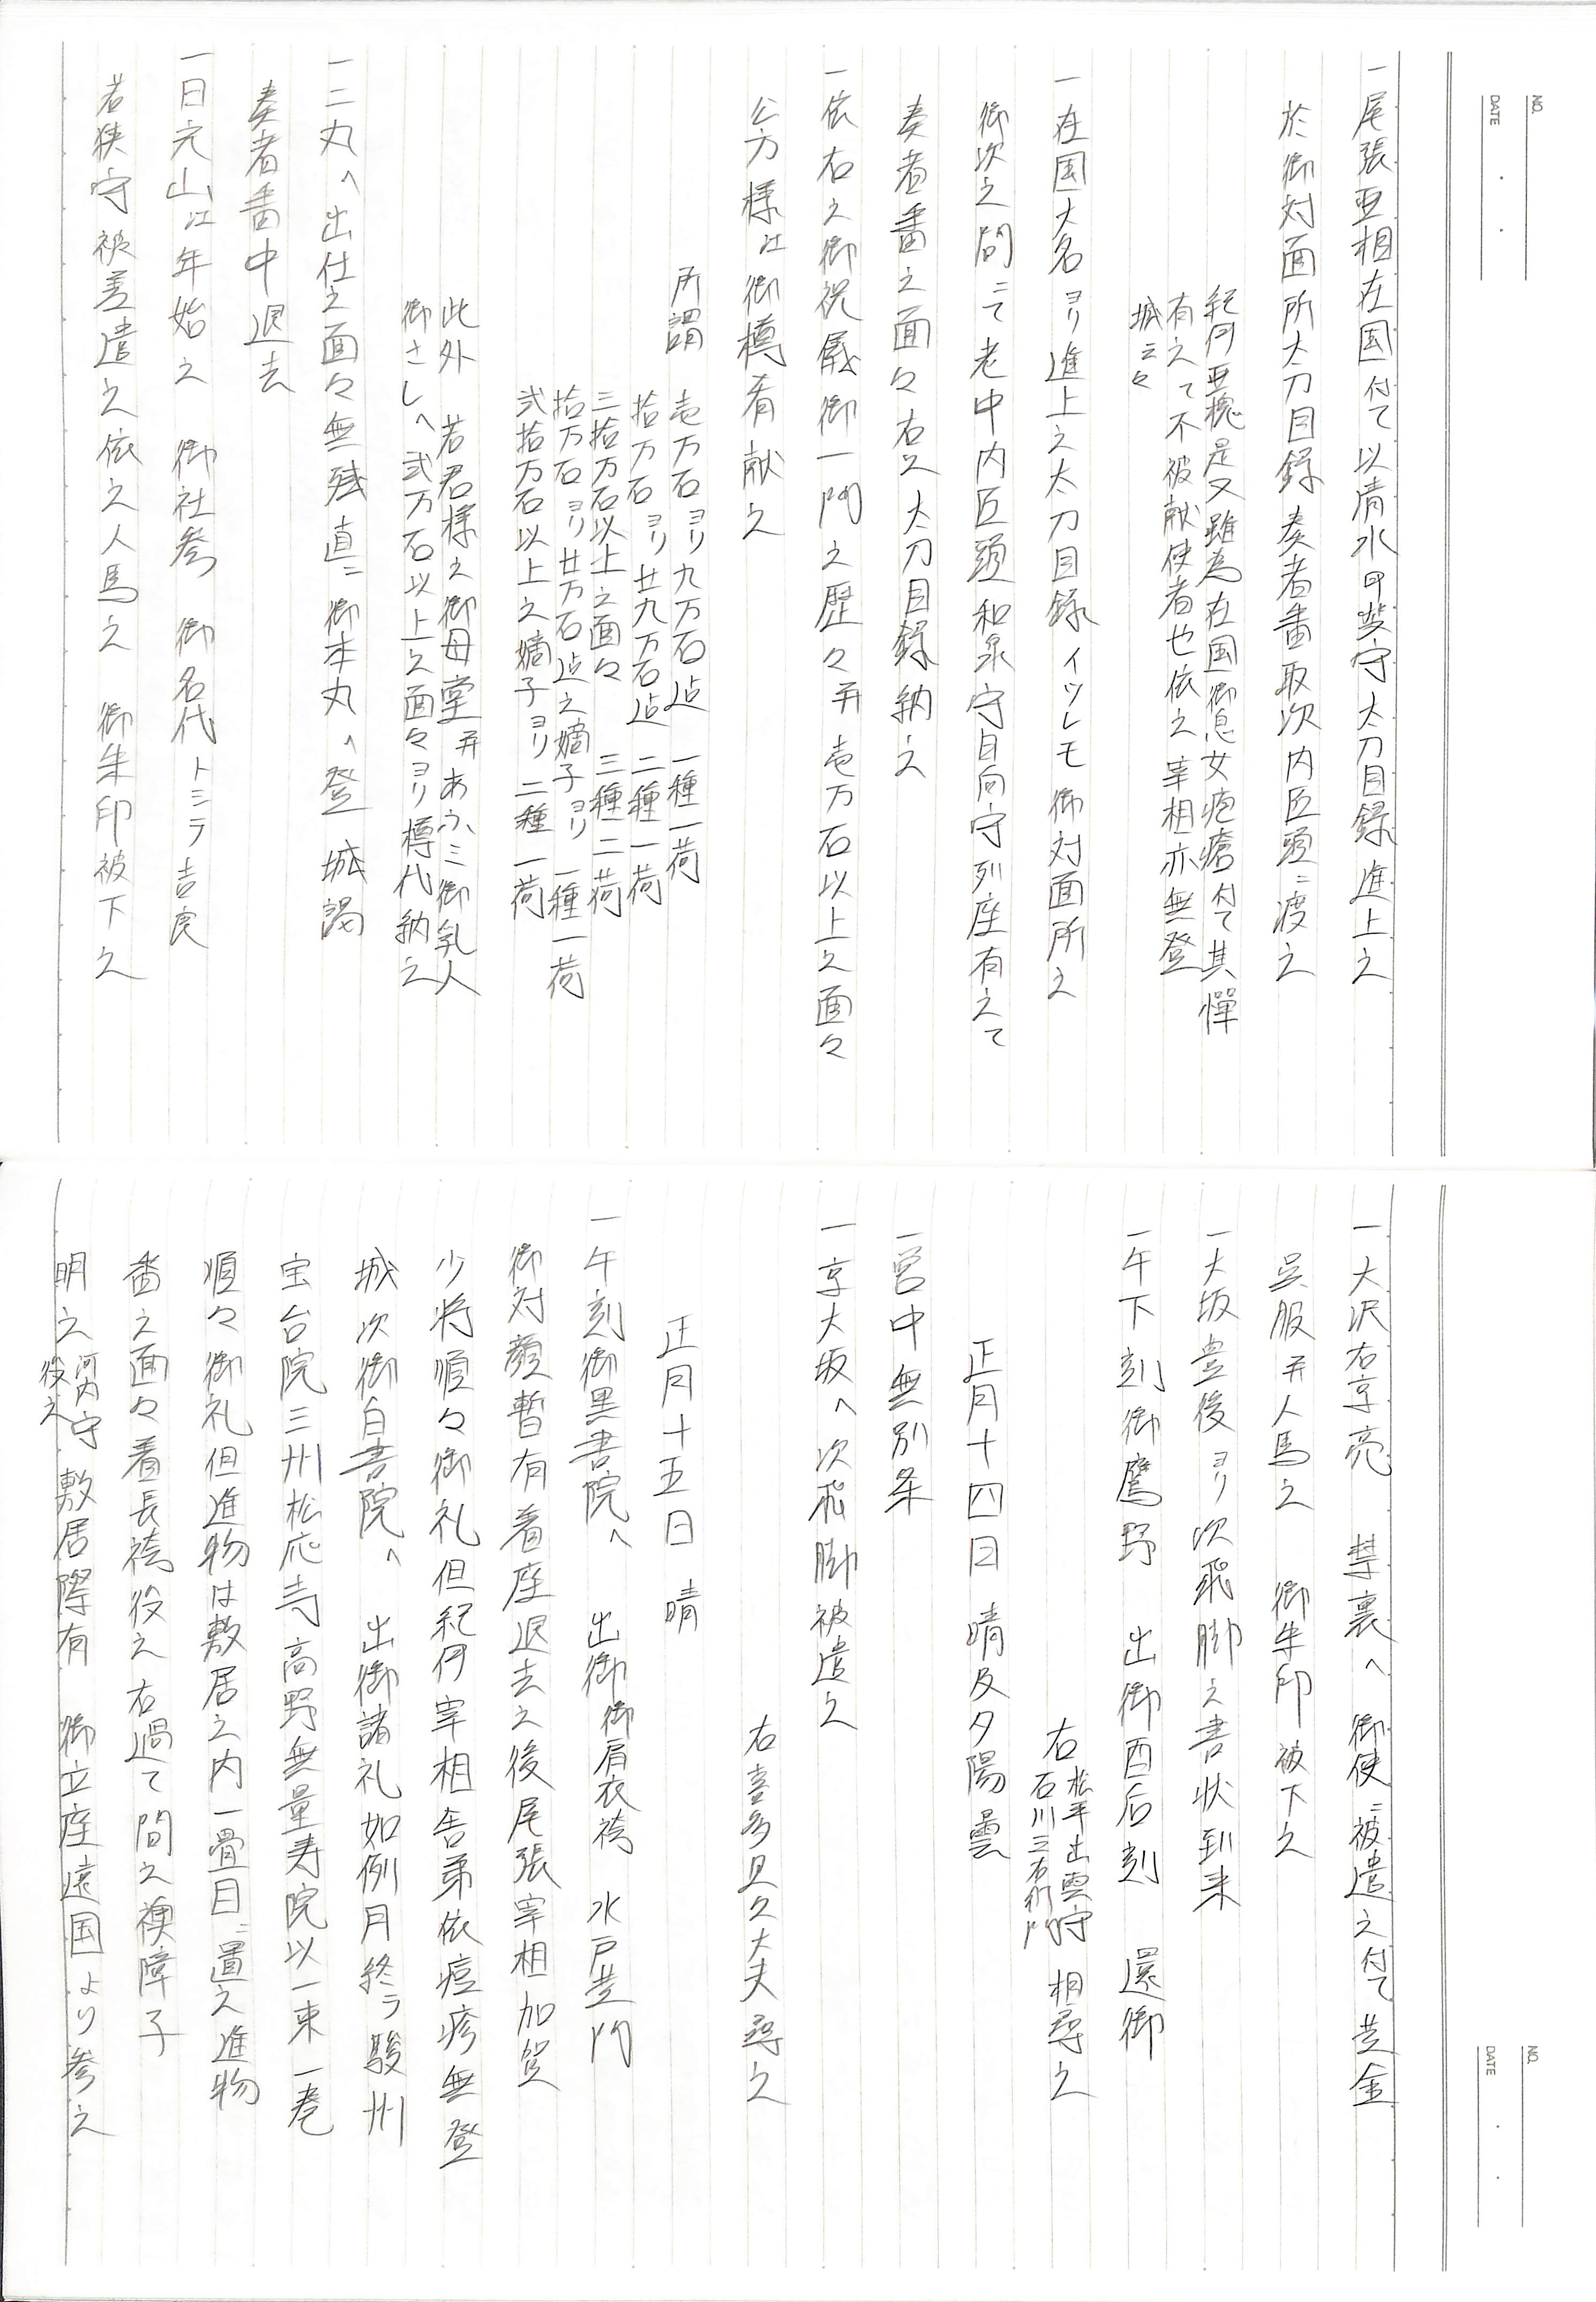 NO.
DATE
一尾張亜相在国付て以清水甲斐守太刀目録進上之
於御対面所太刀目録奏者番取次内匠頭ニ渡之
紀伊亜槐是又雖為在国御息女疱瘡付て其憚
有之て不被献使者也依之宰相亦無登
城云々
一在国大名ヨリ進上之太刀目録イツレモ御対面所之
御次之間ニて老中内匠頭和泉守日向守列座有之て
奏者番之面々右之太刀目録納之
一依右之御祝儀御一門之歴々并壱万石以上之面々
公方様江御樽肴献之
所謂 壱万石ヨリ九万石迠 一種一荷
拾万石ヨリ廿九万石迠 二種一荷
三拾万石以上之面々 三種二荷
拾万石ヨリ廿万石迠之嫡子ヨリ 一種一荷
弐拾万石以上之嫡子ヨリ 二種一荷
此外 若君様之御母堂并あふミ御乳人
御さしへ弐万石以上之面々ヨリ樽代納之
一二丸へ出仕之面々無残直ニ御本丸へ登 城謁
奏者番中退去
一日光山江年始之 御社参 御名代トシテ吉良
若狭守被差遣之依之人馬之 御朱印被下之
NO.
DATE
一大沢右京亮 禁裏へ 御使ニ被遣之付て黄金
呉服并人馬之 御朱印被下之
一大坂豊後ヨリ次飛脚之書状到来
一午下刻御鷹野 出御酉后刻 還御
右松平出雲守 相尋之
石川三右衛門
正月十四日 晴及夕陽曇
一営中無別条
一京大坂へ次飛脚被遣之
右喜多見久大夫尋之
正月十五日 晴
一午刻御黒書院へ 出御御肩衣袴 水戸黄門
御対顔暫有着座退去之後尾張宰相加賀
少将順々御礼但紀伊宰相舎弟依痘疹無登
城次御白書院へ 出御諸礼如例月終ラ駿州
宝台院三州松応寺高野無量寿院以一束一巻
順々御礼但進物は敷居之内一畳目ニ置之進物
番之面々着長袴役之右過て間之襖障子
明之河内守役之敷居際有 御立座遠国より参之